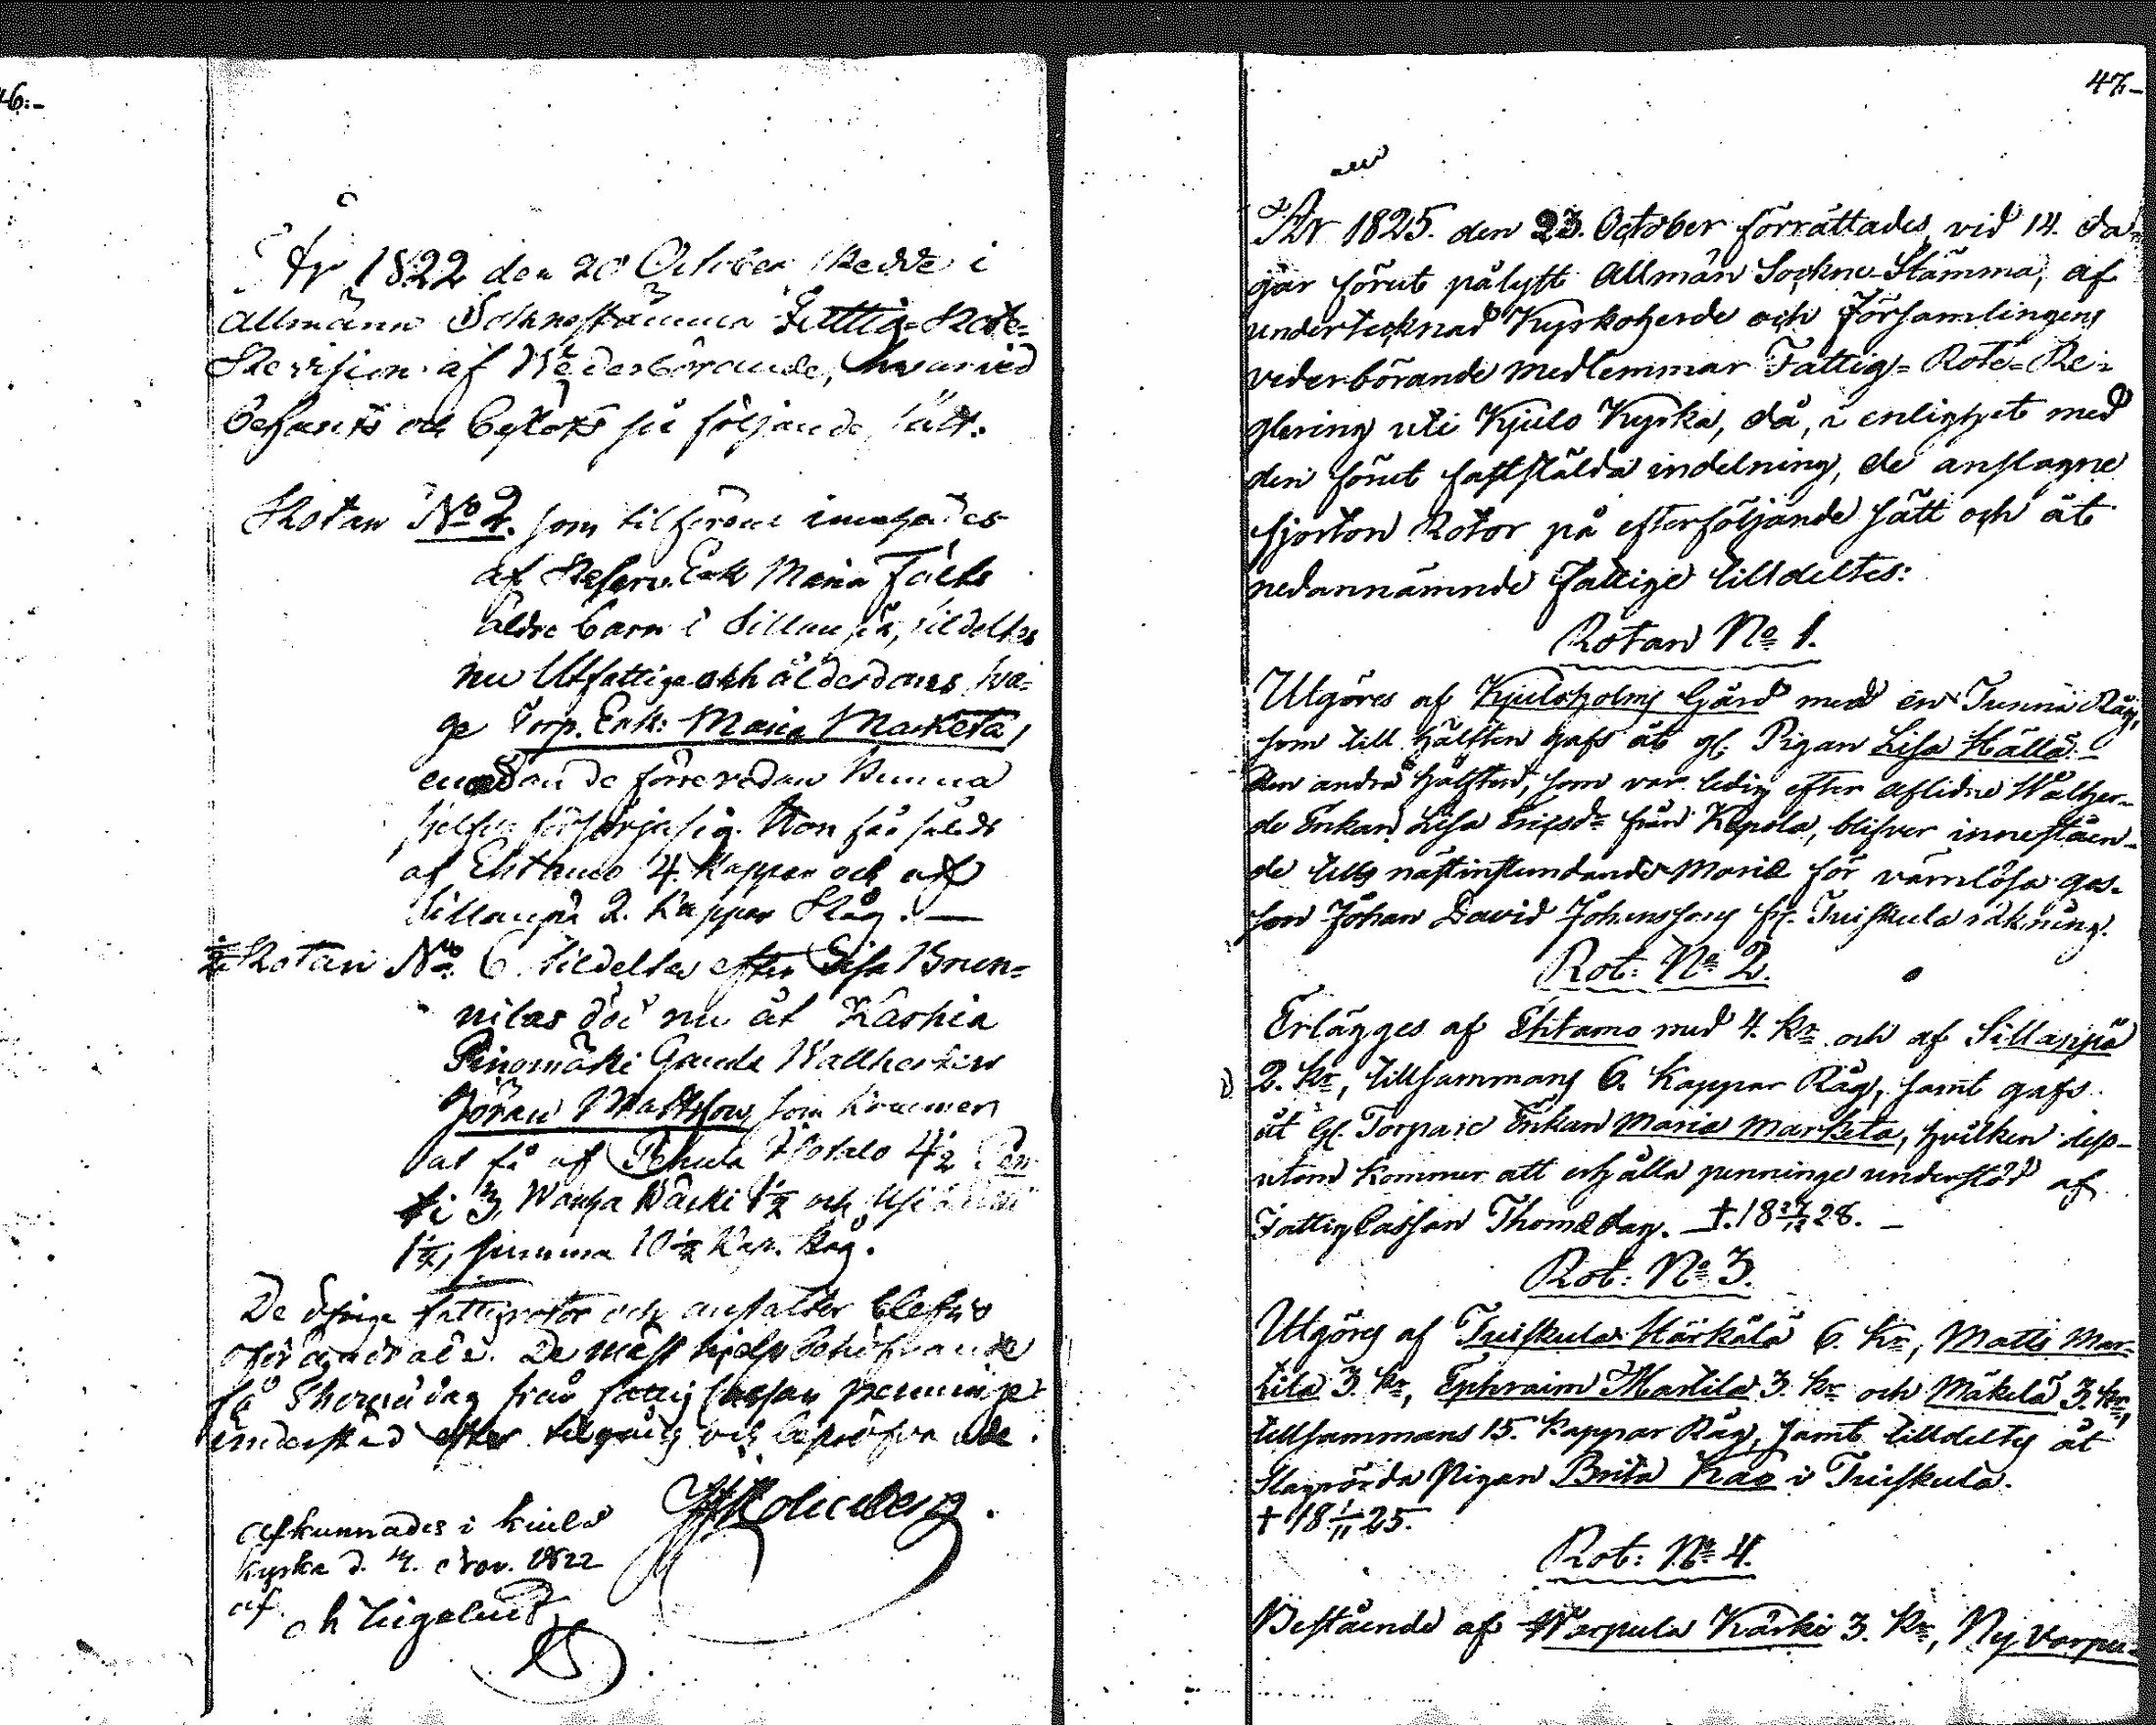 46.-
År 1822 den 20 October skedde i
allmänn Sockneståmma Fattig-Rote-
Revision af Wederbörande, hvarvid
befants och beslöts på följande sätt.
Rotan No 2. som tilförene innehades
af Reserv. Enk Maria Fälts
äldre barn i Sillanpä, tildeltes
nu Utfattiga och ålderdoms sva-
ge Torp. Enk: Maria Marketa,
emedan de förre redan kunna
sjelfva försörja sig. Hon får således
af Ehtamo 4 kappar och af
Sillanpä 2. kappar Råg. —
Rotan No 6. tildeltes efter Lisa Brun-
nilas död nu åt Karhia
Pinomäki Gamla Wallherden
Jöran Mattsson som kommer
at få af Pehula Hotalo 4½ Pen
ti 3, Wanha Käcki 1½ och
1½, summa 10½ kap. Råg.
De öfrige fattigrotor och anstalter blefvo
oförändrade. De mäst hjelp behöfvande
få Thomædag från fattig Cassan penninge
understöd efter tilgång och bepröfvande.
afkunnades i Kiulo
kyrka d. 4. Nov. 1822
af
47.-
År 1825. den 23. October förrättades, vid 14. da-
gar förut pålyst Allmän Sockne-Stämma, af
undertecknad Kyrkoherde och Församlingens
vederbörande medlemmar Fattig-Rote-Re-
glering uti Kjulo Kyrka, då, i enlighet med
den förut fastställda indelning, de anslagne
fjorton Rotor på efterföljande sätt och åt
nedannämnde fattige tilldeltes:
Rotan No 1.
Utgöres af Kjuloholms Gård med en Tunna Råg,
som till hälften gafs åt gl. Pigan Lisa Hällä.-
Den andra hälften, som var ledig efter aflidne Walher-
de Enkan Lisa Erichsdr från Kepola, blifver innestäen-
de tills nästinstundande Mariæ för värnlösa gos-
son Johan David Johanssons fr. Tuiskula räkning.
Rot: No 2.
Erlägges af Ehtamo med 4. kr och af Sillanpä
2. kr, tillsammans 6. Kappar Råg, samt gafs
åt gl. Torpare Enkan Maria Marketa, hvilken dess-
utom kommer att erhålla penninge understöd af
Fattig Cassan Thomæ dag. †. 18 27/12 28. -
Rot: No 3.
Utgöres af Tuiskula Härkälä 6. kr, Matts Mar-
tila 3. kr, Ephraim Martila 3. kr och Mäkelä 3. kr,
tillsammans 15. Kappar Råg, samt tilldeltes åt
slagrörda Pigan Brita i Tuiskula.
† 18 1/11 25.
Rot: No 4.
Bestående af Warpula Kärki 3. kr, Ny Varpu-